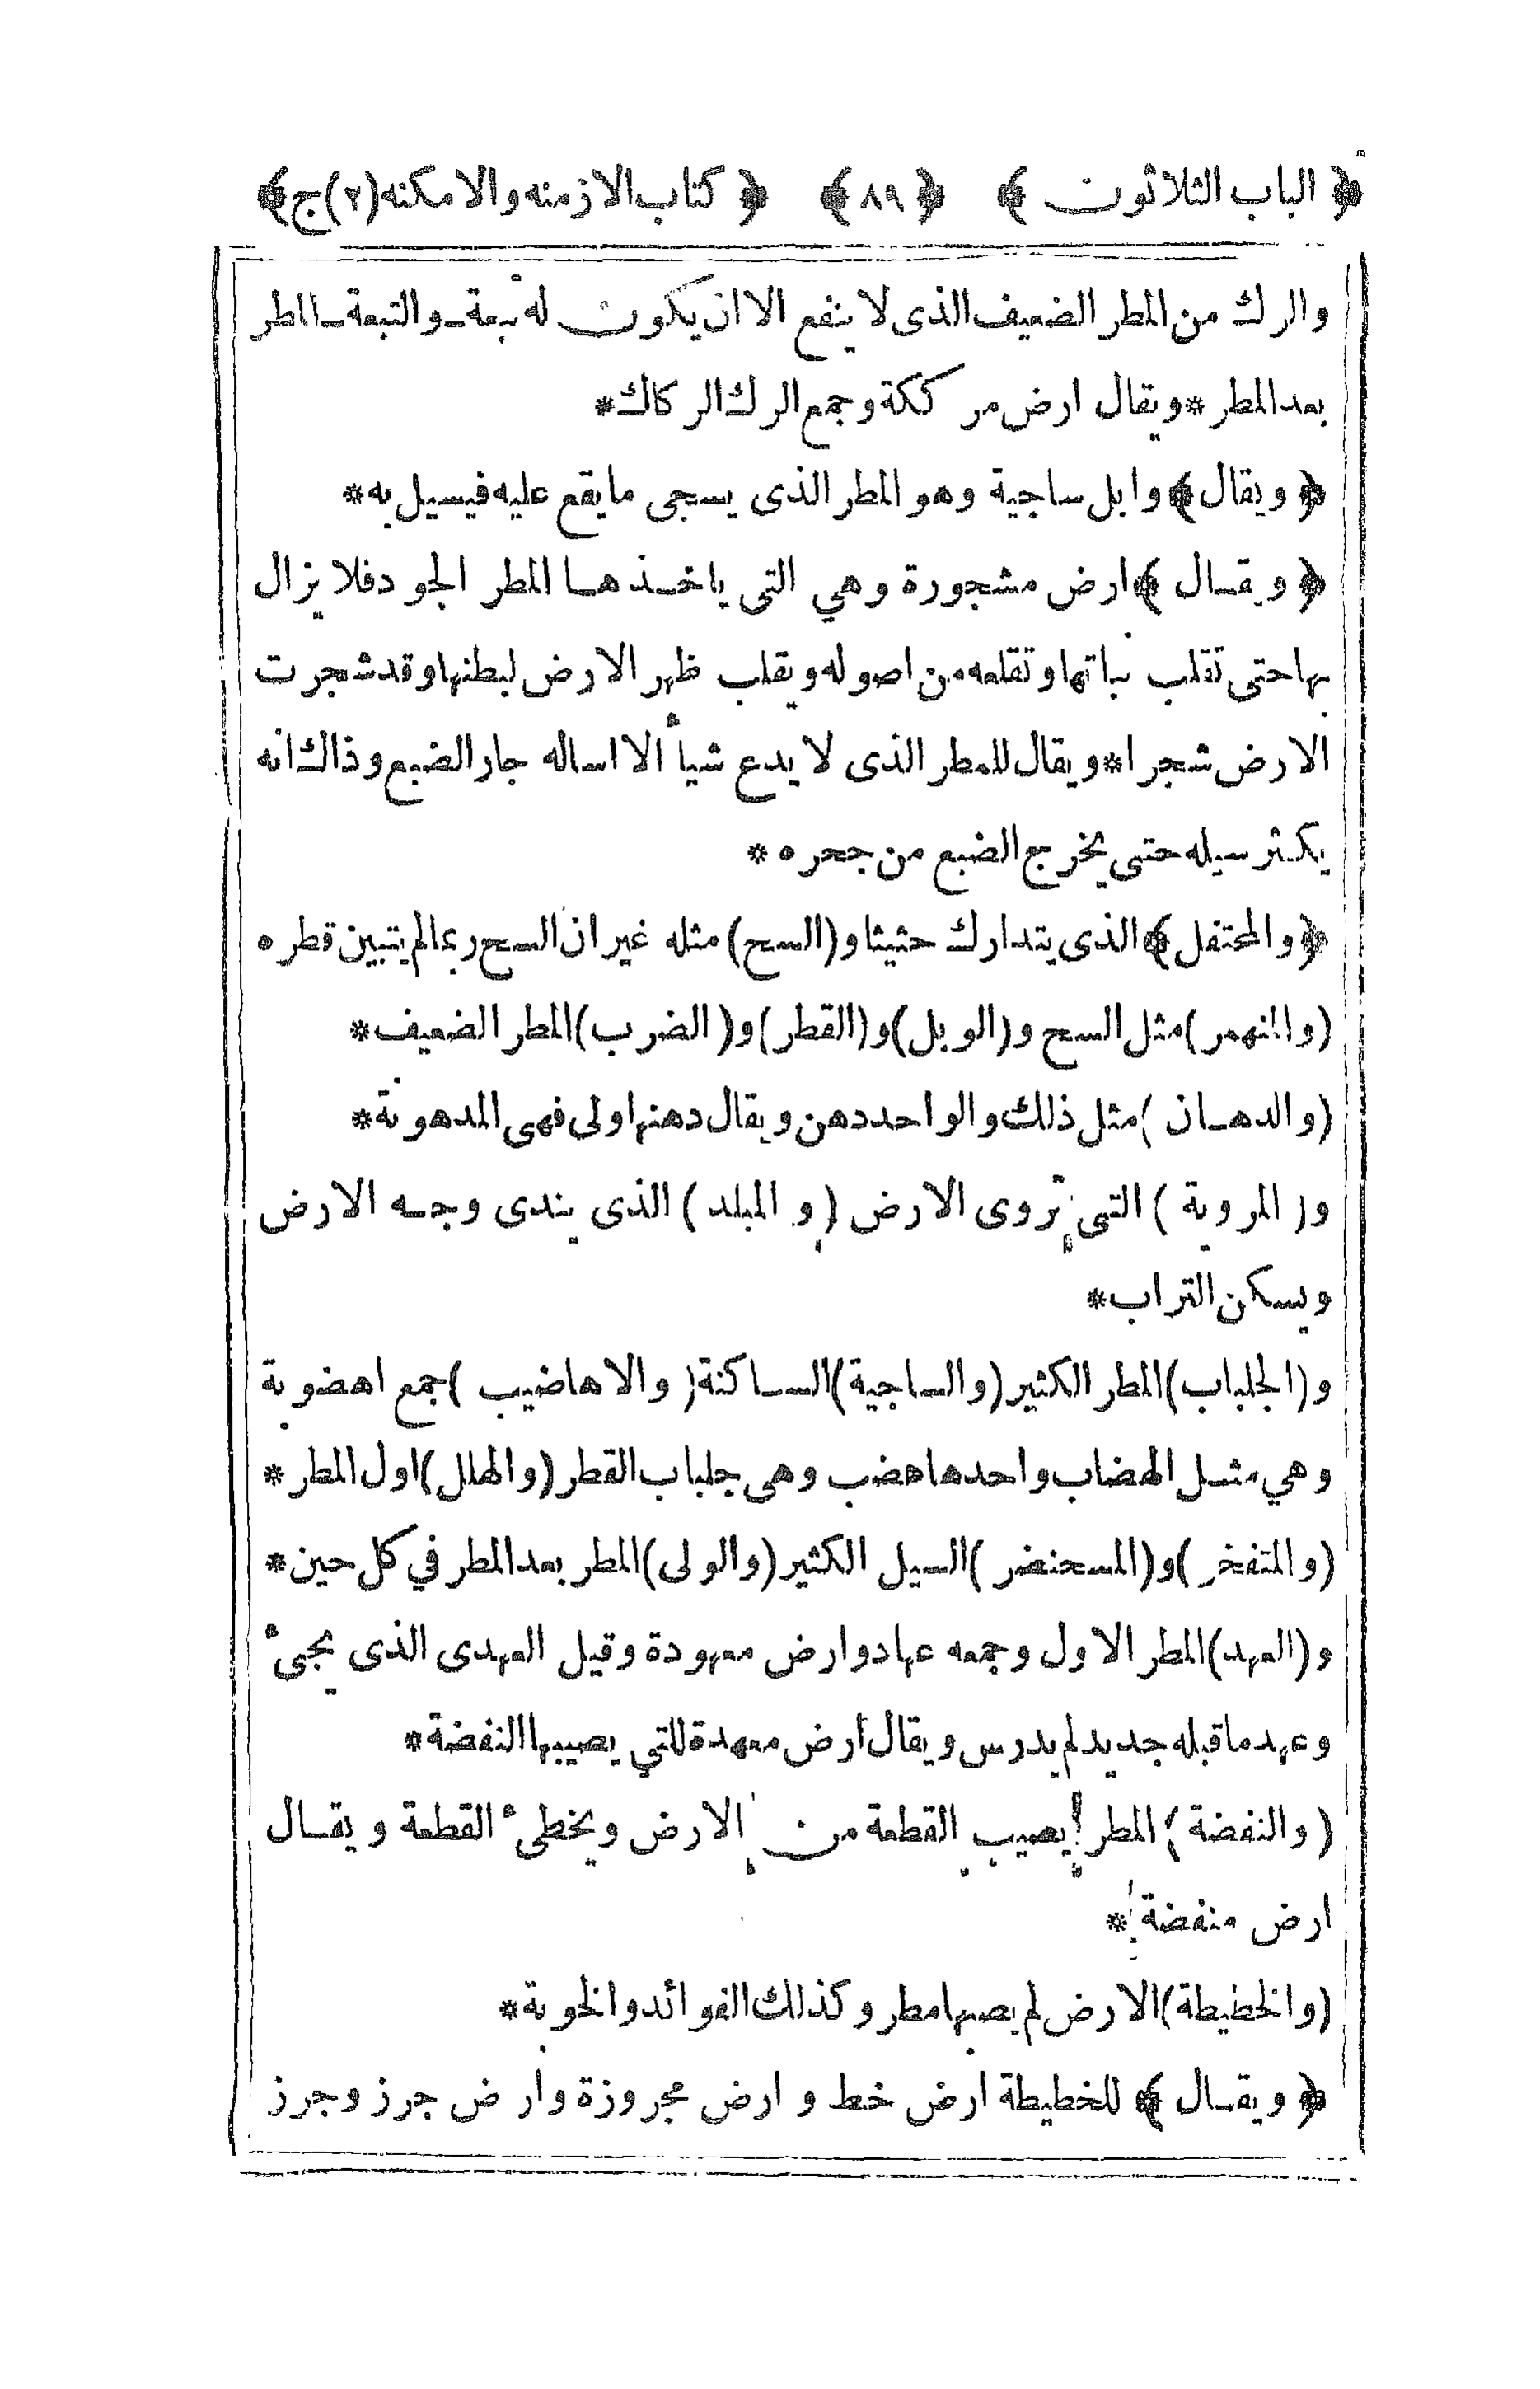 ﴿ الباب الثلاثون ﴾ ﴿ ٨٩ ﴾ ﴿ كتاب الازمنه والامكنه (٢) ج ﴾
والرك من المطر الضعيف الذى لا ينفع الا ان يكون له تبعة والتبعة المطر
بعد المطر * ويقال ارض مرككة وجمع الرك الركاك *
﴿ ويقال ﴾ وابل ساجية وهو المطر الذى يسجى ما يقع عليه فيسيل به *
﴿ ويقال ﴾ ارض مشجورة وهي التى ياخذها المطر الجود فلا يزال
بها حتى تقلب نباتها وتقلعه من اصوله ويقلب ظهر الارض لبطنها وقد شجرت
الارض شجرا * ويقال للمطر الذى لا يدع شيأ الا اساله جار الضبع وذاك انه
يكثر سيله حتى يخرج الضبع من جحره *
﴿ والمحتفل ﴾ الذى يتدارك حثيثا و(السح) مثله غير ان السح ربما لم يتبين قطره
(والمنهمر) مثل السح و(الوبل) و(القطر) و(الضرب) المطر الضعيف *
(والدهان) مثل ذلك والواحد دهن ويقال دهنها ولى فهى المدهونة *
و( المروية ) التى تروى الارض ( و المبلد ) الذى يندى وجه الارض
ويسكن التراب *
و(الجلباب) المطر الكثير (والساجية) الساكنة (والاهاضيب) جمع اهضوبة
وهي مثل الهضاب واحدها هضب وهى جلباب القطر (والهلل) اول المطر *
(والمتفخر) و(المسحنضر) السيل الكثير (والولى) المطر بعد المطر في كل حين *
و(العهد) المطر الاول وجمعه عهاد وارض معهودة وقيل العهدى الذى يجىء
وعهد ما قبله جديد لم يدرس ويقال ارض معهدة للتي يصيبها النفضة *
(والنفضة) المطر يصيب القطعة من الارض ويخطىء القطعة ويقال
ارض منفضة *
(والخطيطة) الارض لم يصبها مطر وكذلك الفوائد والخوبة *
﴿ ويقال ﴾ للخطيطة ارض خط و ارض مجروزة وارض جرز وجرز